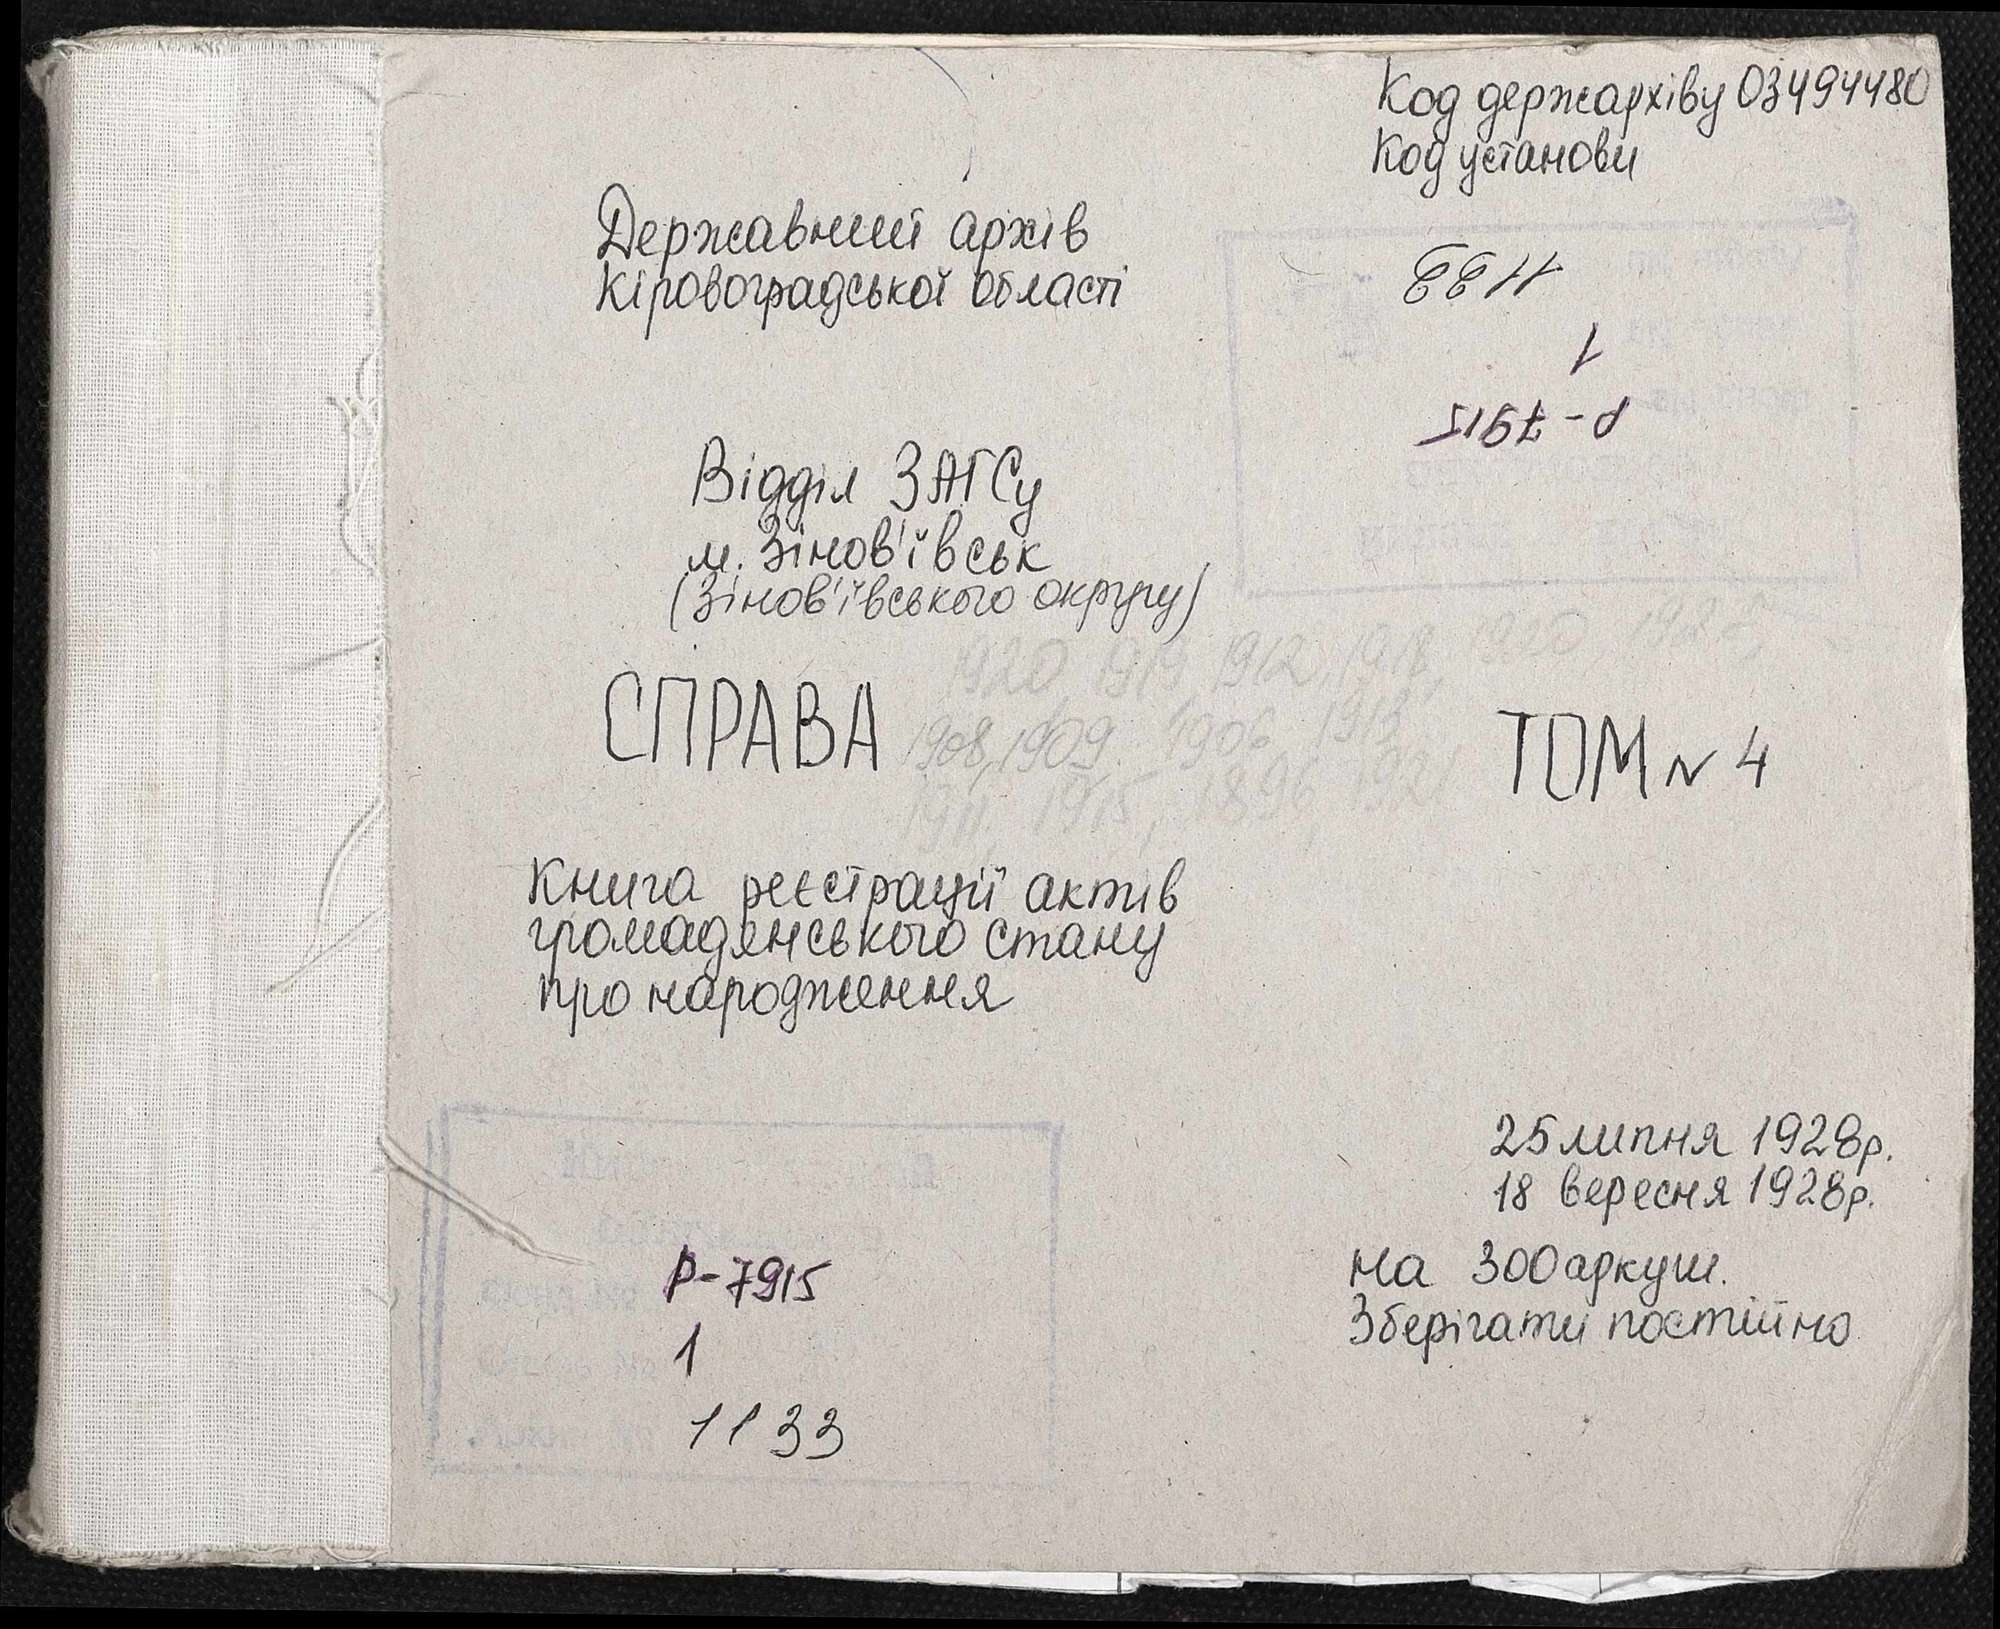 Код держархіву 03494480
Код установи
Державний архів
Кіровоградської області
1133
1
Р-7915
Відділ ЗАГСу
м. Зінов'ївськ
(Зінов'ївського округу)
1920, 1919, 1912, 1918, 1920,
СПРАВА
1908, 1909 1906, 1913
ТОМ N 4
1911, 1915, 1896,
Книга реєстрації актів
громадянського стану
про народження
25 липня 1928р.
18 вересня 1928р.
На 300 аркуш.
Зберігати постійно
Р-7915
1
1133